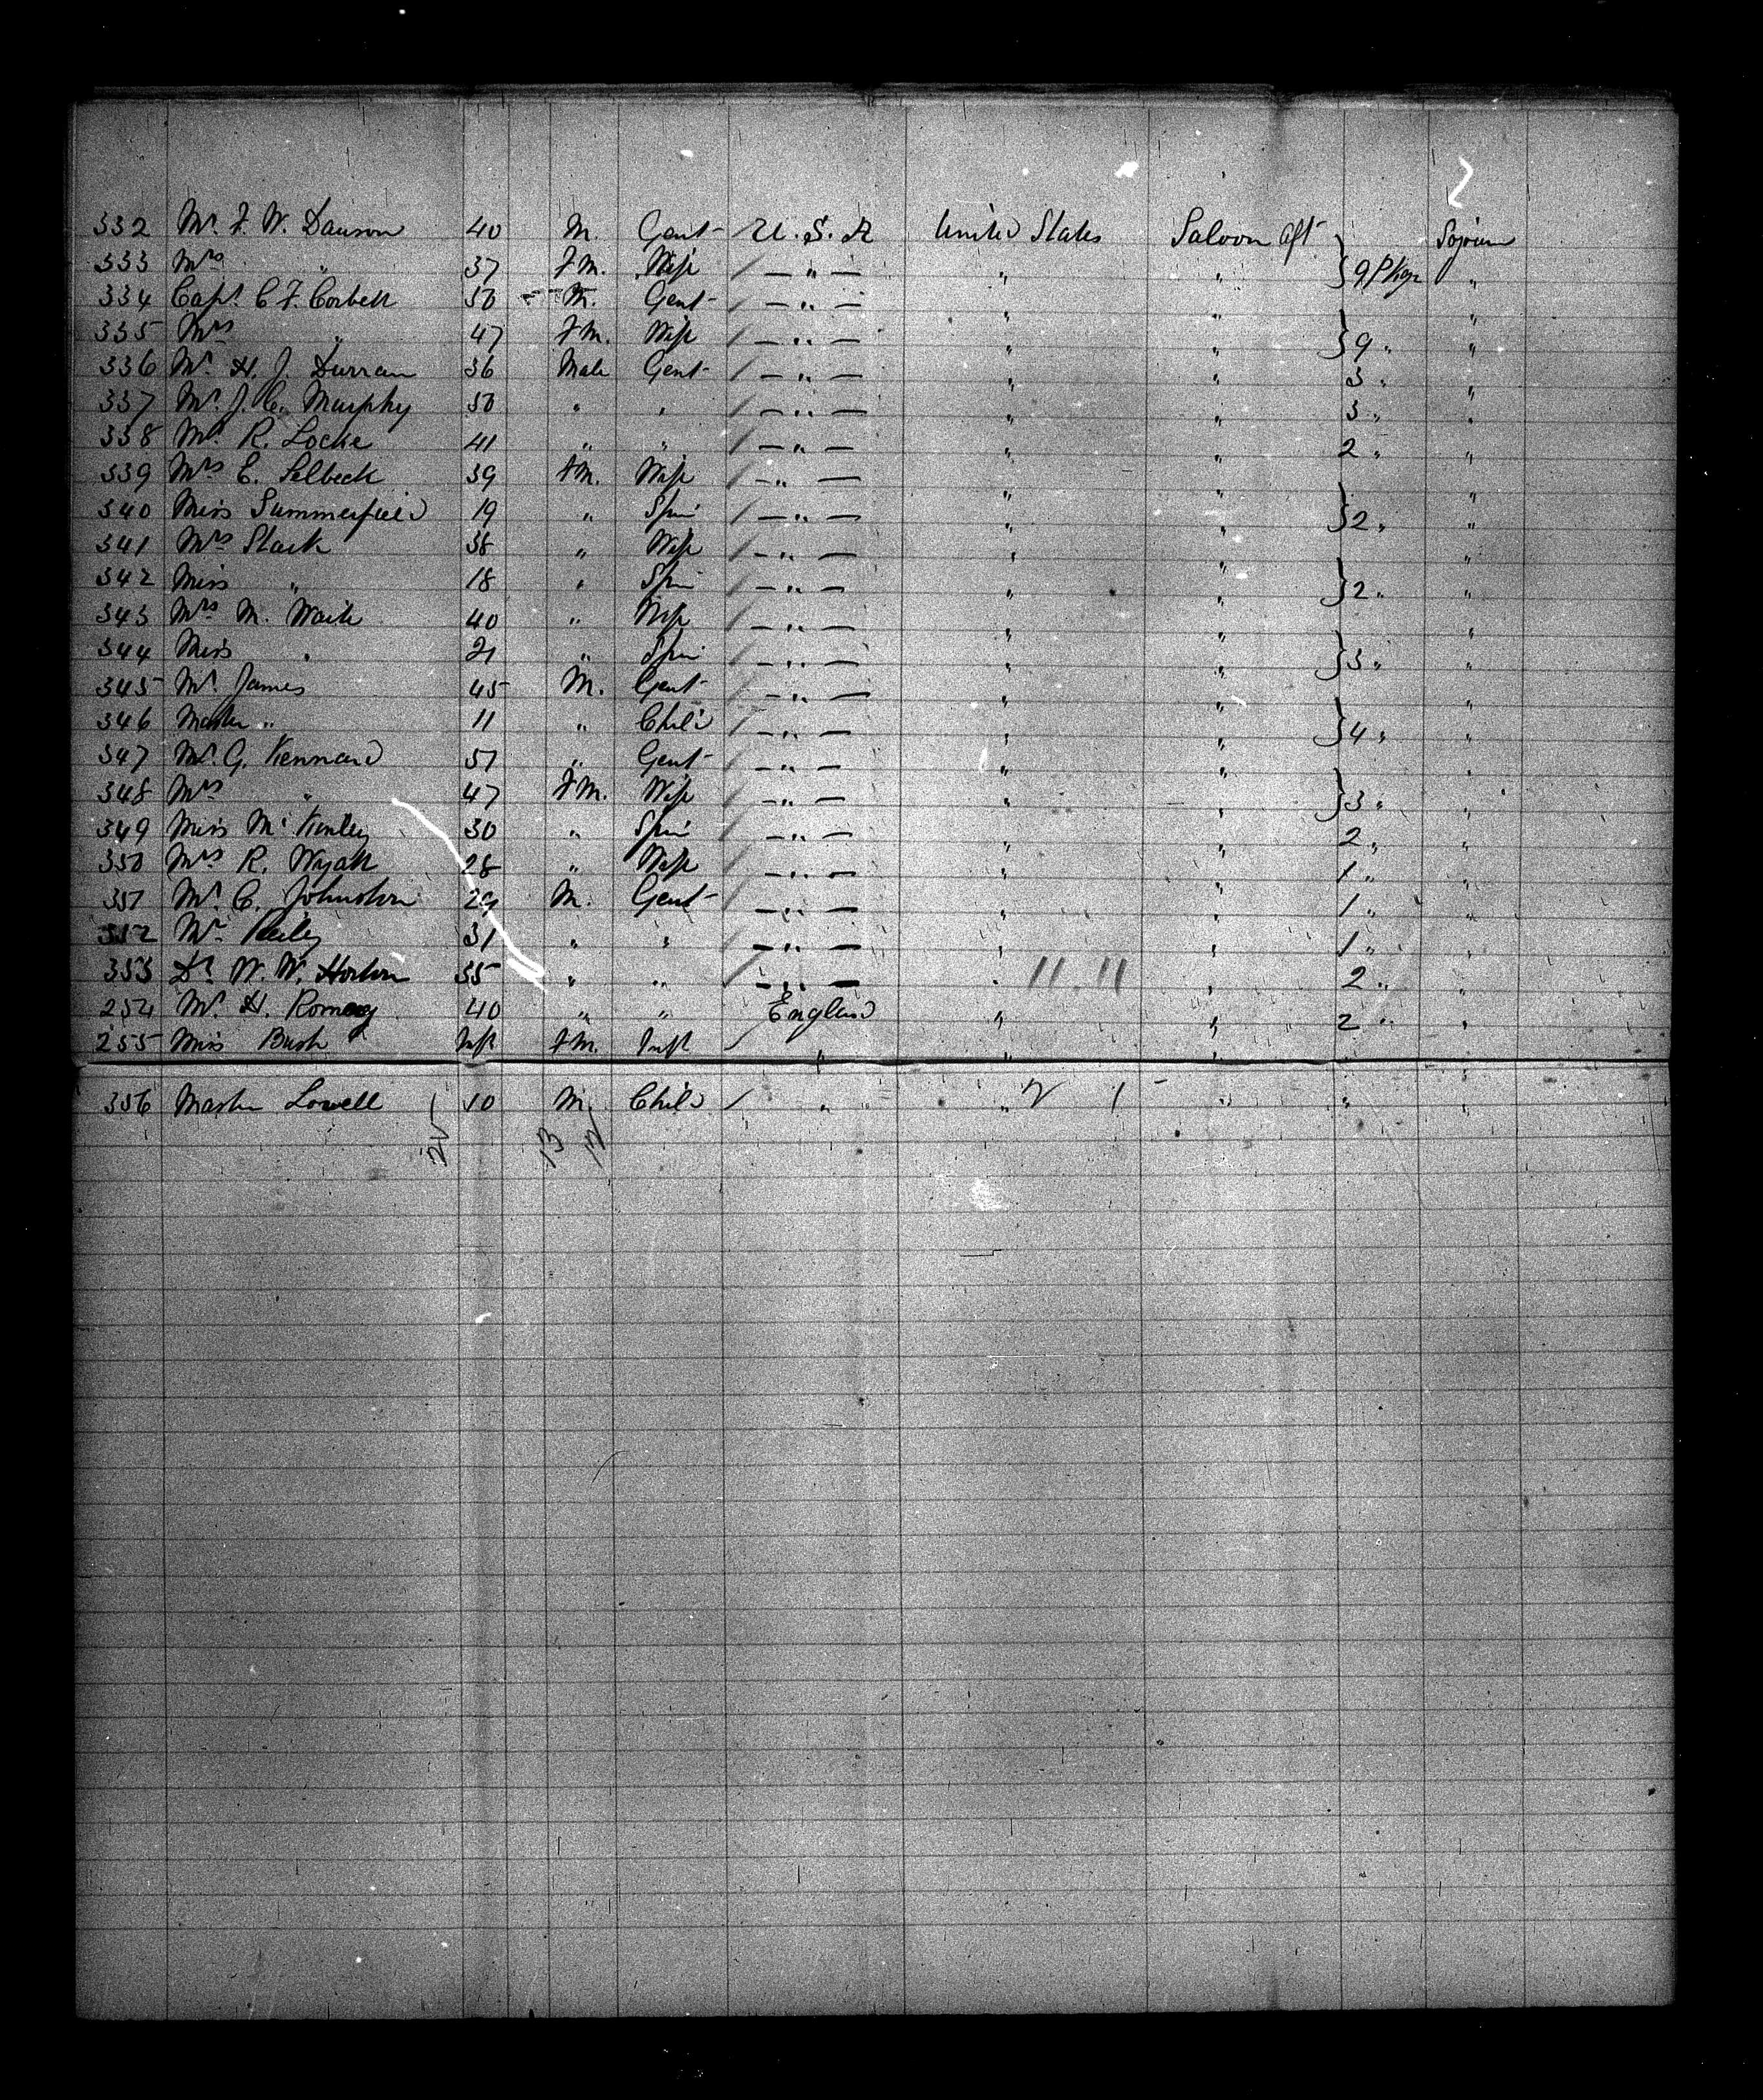 332 Mr. F. W. Dawson 40 M. Gent U.S.A United States Saloon aft Sojourn
333 Mrs " 37 FM. Wife — " — " " } 9 Pkgs "
334 Capt. C F. Corbett 50 M. Gent — " — " " "
335 Mrs " 47 FM. Wife — " — " " } 9 " "
336 Mr. H. J. Durran 36 Male Gent — " — " " 3 " "
337 Mr. J. C. Murphy 50 " " — " — " " 3 " "
338 Mr. R. Locke 41 " " — " — " " 2 " "
339 Mrs E. Selbeck 39 FM. Wife — " — " " "
340 Miss Summerfield 19 " Spin — " — " " } 2 " "
341 Mrs Slack 38 " Wife — " — " " "
342 Miss " 18 " Spin — " — " " } 2 " "
343 Mrs M. Waite 40 " Wife — " — " " "
344 Miss " 21 " Spin — " — " " } 3 " "
345 Mr. James 45 M. Gent — " — " " "
346 Master " 11 " Child — " — " " } 4 " "
347 Mr. G. Kennard 57 " Gent — " — " " "
348 Mrs " 47 FM. Wife — " — " " } 3 " "
349 Miss McKinley 30 " Spin — " — " " 2 " "
350 Mrs R. Wyatt 28 " Wife — " — " " 1 " "
351 Mr C. Johnston 29 M. Gent — " — " " 1 " "
352 Mr. Reily 31 " " — " — " " 1 " "
353 Dr. W. W. Horton 35 " " — " — " 11 11 " 2 " "
254 Mr. H. Romey 40 " " England " " 2 " "
255 Miss Bush Inft FM. Inft " " "
356 Master Lowell 10 M. Child " " " " "
13 12